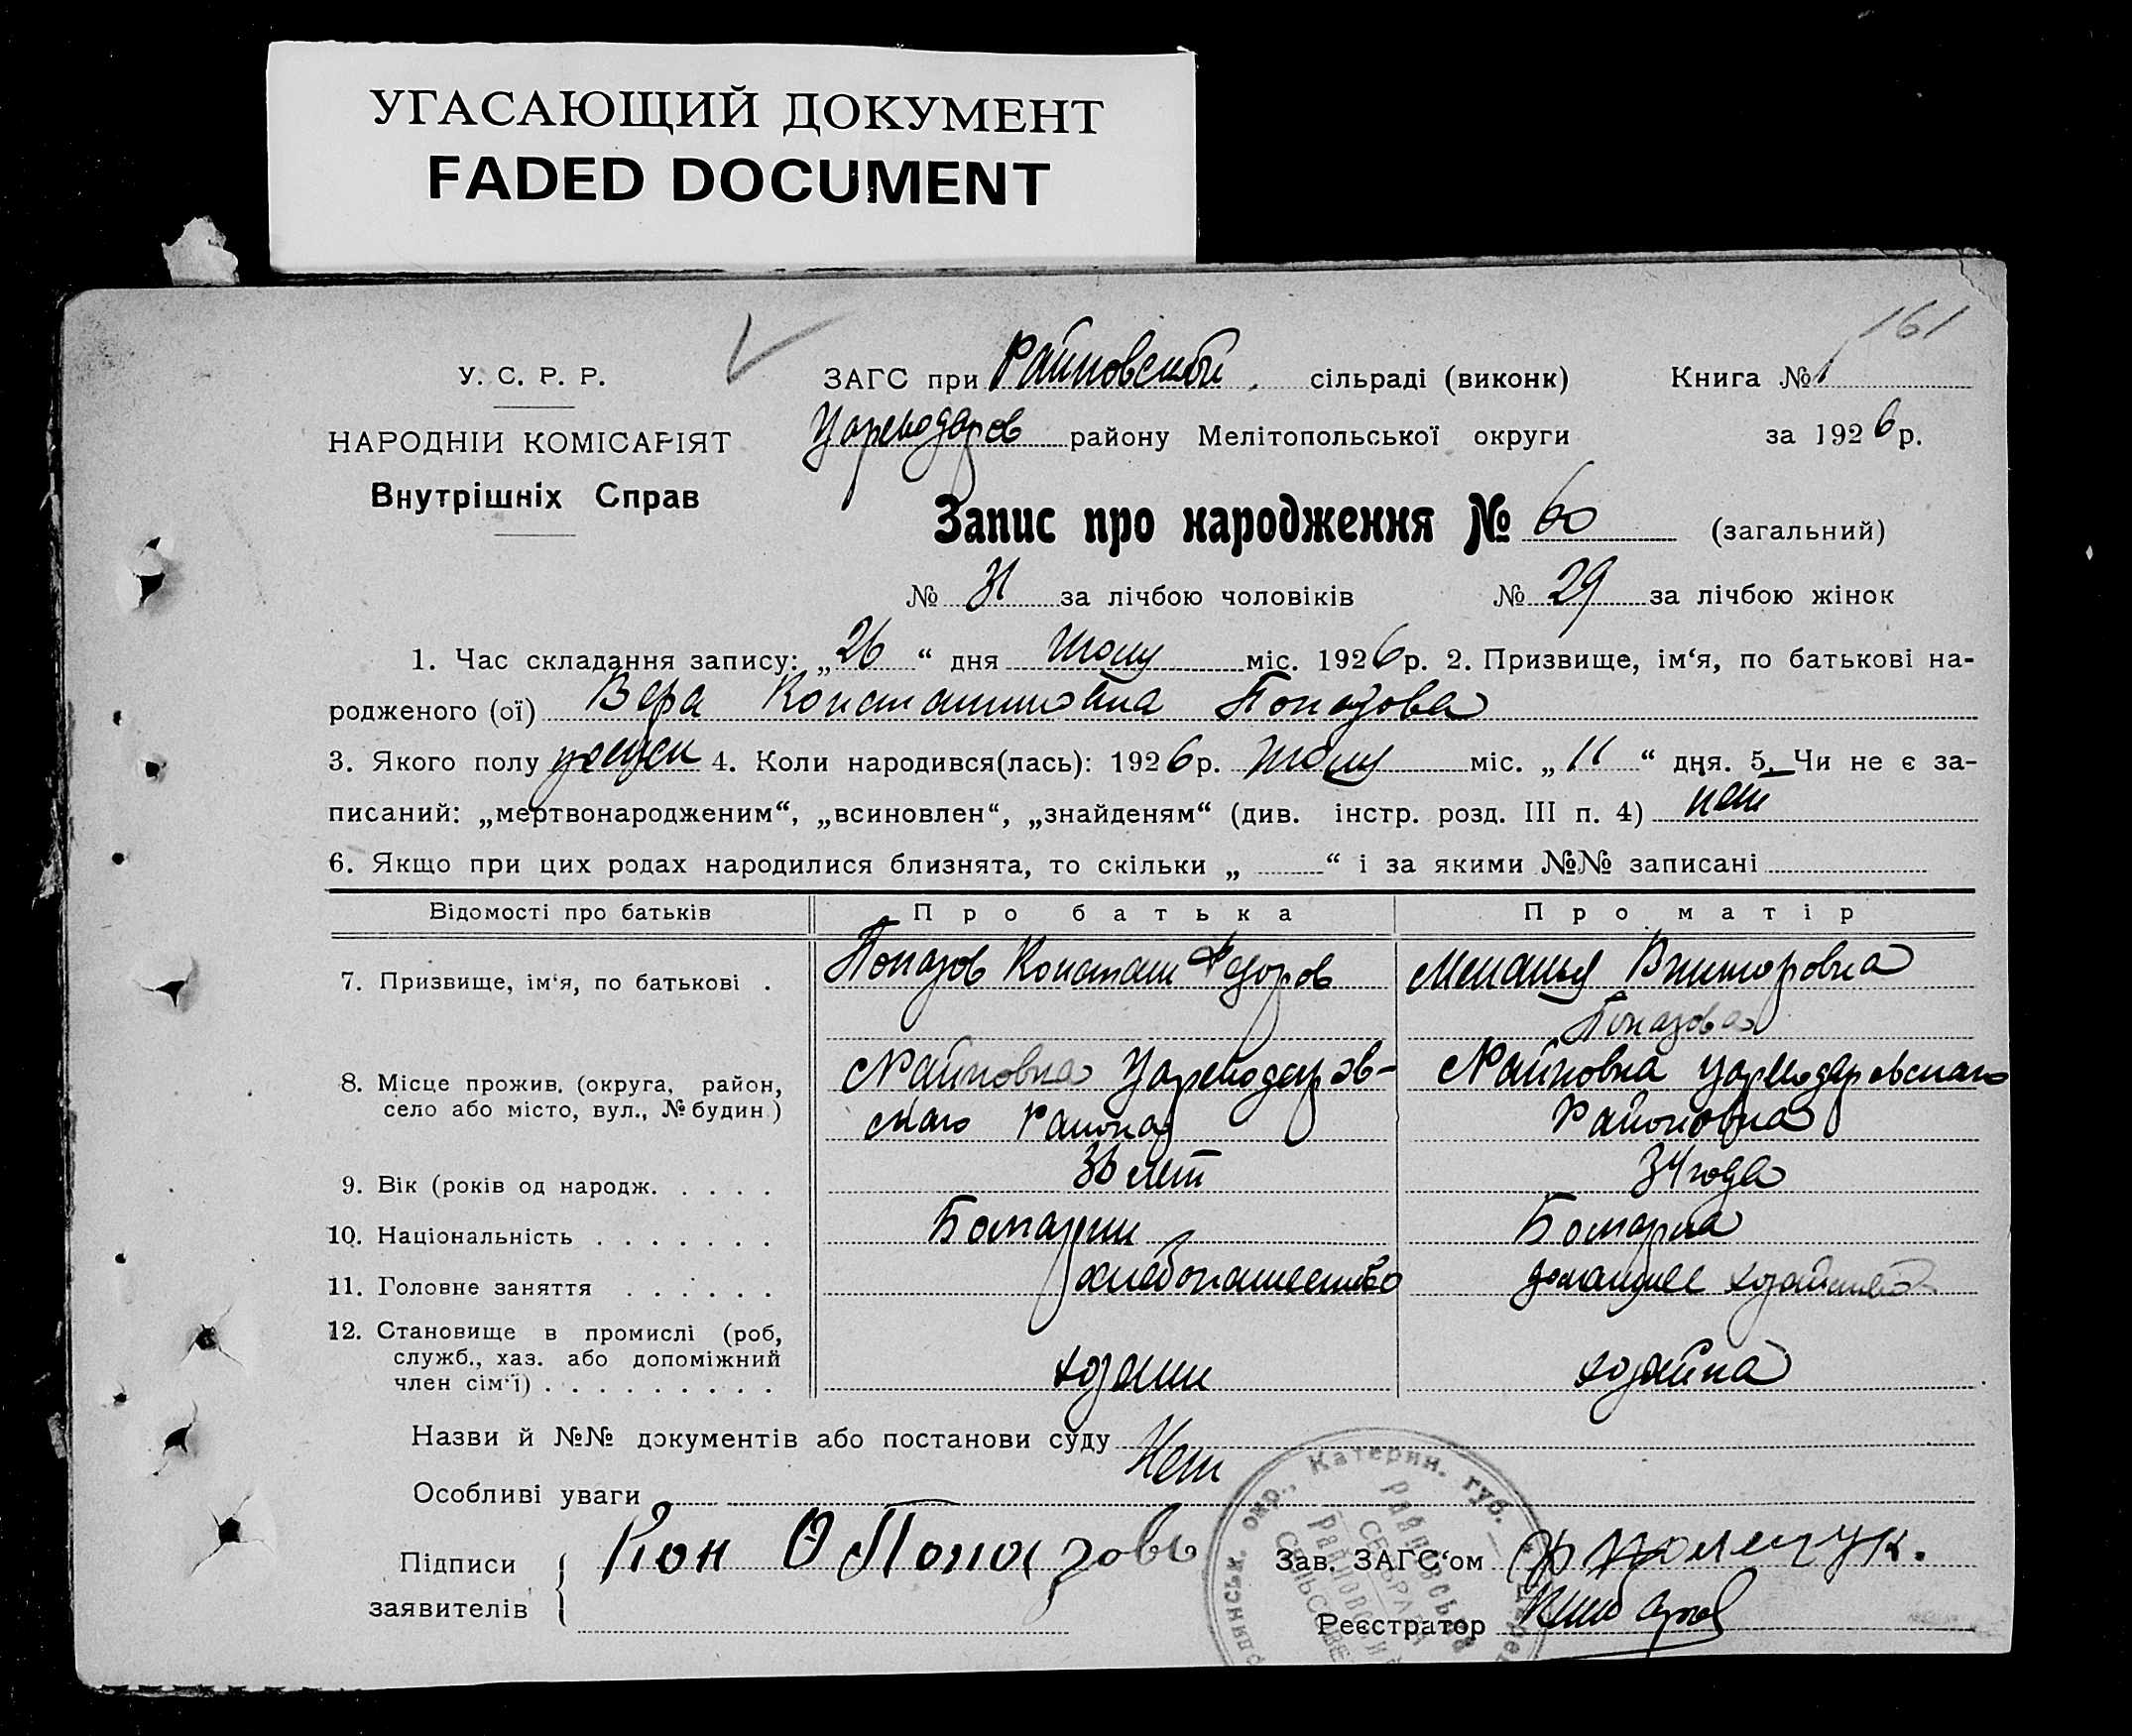 УГАСАЮЩИЙ ДОКУМЕНТ
FADED DOCUMENT
161
У. С. Р. Р.
НАРОДНІИ КОМІСАРІЯТ
Внутрішніх Справ
ЗАГС при Райновский сільраді (виконк) Книга № 1
Цареводаров району Мелітопольської округи за 1926 р.
Запис про народження № 60 (загальний)
№ 31 за лічбою чоловіків № 29 за лічбою жінок
1. Час складання запису: „26“ дня Июлу міс. 1926 р. 2. Призвище, ім‘я, по батькові на-
родженого (ої) Вера Константиновна Попазова
3. Якого полу 4. Коли народився(лась): 1926 р. Июлу міс. „11“ дня. 5. Чи не є за-
писаний: „мертвонародженим“, „всиновлен“, „знайденям“ (див. інстр. розд. III п. 4) нет
6. Якщо при цих родах народилися близнята, то скільки „ “ і за якими №№ записані
Відомості про батьків Про батька Про матір
7. Призвище, ім‘я, по батькові . Попазов Констан Федоров Меланья Викторовна
Попазова
8. Місце прожив. (округа, район, село або місто, вул., № будин.) с Райновка Цареводаров-
скаго Района
с Райновка Цареводаровскаго
9. Вік (років од народж. . . . . 36 лет 34 года
10. Національність . . . . . . . Болгарин Болгарка
11. Головне заняття . . . . . . хлебопашество домашнее хозяйство
12. Становище в промислі (роб,
служб., хаз. або допоміжний
член сім‘ї) . . . . . . . . . хозяин хозяйка
Назви й №№ документів або постанови суду Нет
Особливі уваги
Підписи
заявителів
Кон Ѳ Попазовъ
Зав. ЗАГС‘ом
Реєстратор
окр., Катерин. губ.
Райновська